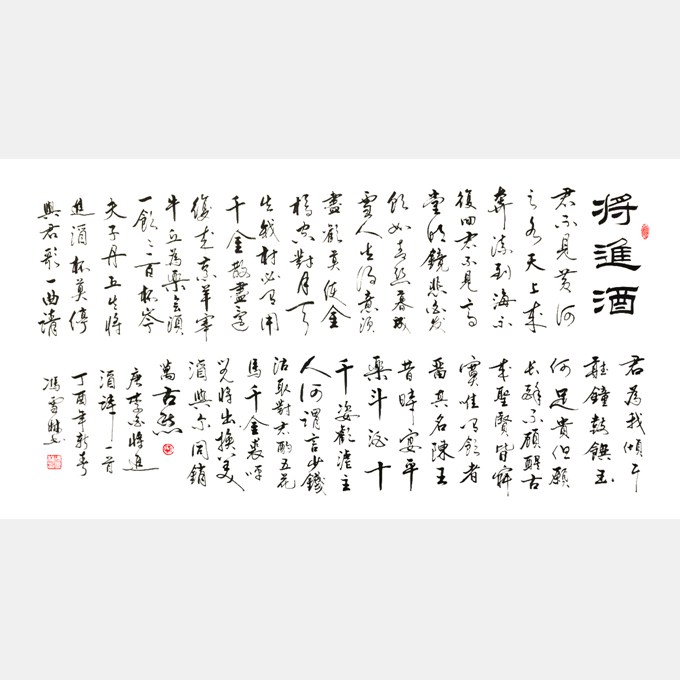 将進酒
君不見黄河
之水天上来
奔流到海不
復回君不見高
堂明鏡悲白发
朝如青丝暮成
雪人生得意須
盡歡莫使金
樽空對月天
生我材必有用
千金散盡還
復来烹羊宰
牛且為樂會須
一飲三百杯岑
夫子丹丘生将
進酒杯莫停
與君歌一曲請
君為我傾耳
聽鐘鼓饌玉
何足貴但願
长醉不願醒古
来聖賢皆寂
寞惟有飲者
留其名陳王
昔時宴平
樂斗酒十
千恣歡謔主
人何謂言少錢
沽取對君酌五花
馬千金裘呼
兒将出換美
酒與尔同銷
萬古愁
唐李白将進
酒詩一首
丁酉年新春
馮雪林书